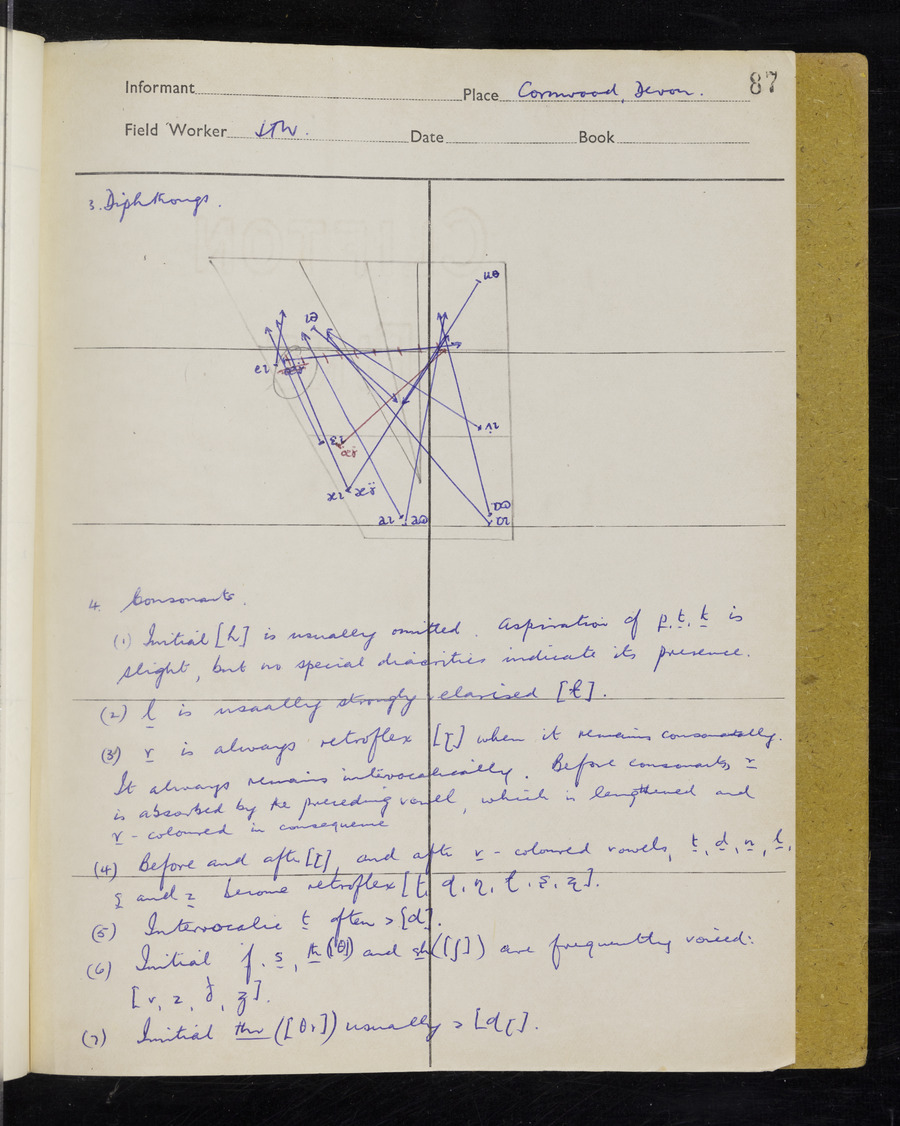 87
Informant
Place Cornwood, Devon.
Field Worker
Date
Book
3. Diphthongs.
ɪə
ʊə
eɪ
ɛɪ
æɪ
aɪ aʊ
ɒʊ
ɒɪ
ʌɪ
4. Consonants.
(1) Initial [h] is usually omitted. Aspiration of p, t, k is
slight, but no special diacritics indicate its presence.
(2) l is usually strongly velarised [ɫ].
(3) r is always retroflex [ɽ] when it remains consonantally.
It always remains intervocalically. Before consonants, r
is absorbed by the preceding vowel, which is lengthened and
r-coloured in consequence
(4) Before and after [ɽ], and after r-coloured vowels, t, d, n, l,
s and z become retroflex [ʈ, ɖ, ɳ, ɭ, ʂ, ʐ].
(5) Intervocalic t often > [d].
(6) Initial f, s, th ([θ]) and sh ([ʃ]) are frequently voiced:
[v, z, ð, ʒ].
(7) Initial thr ([θr]) usually > [dɽ].